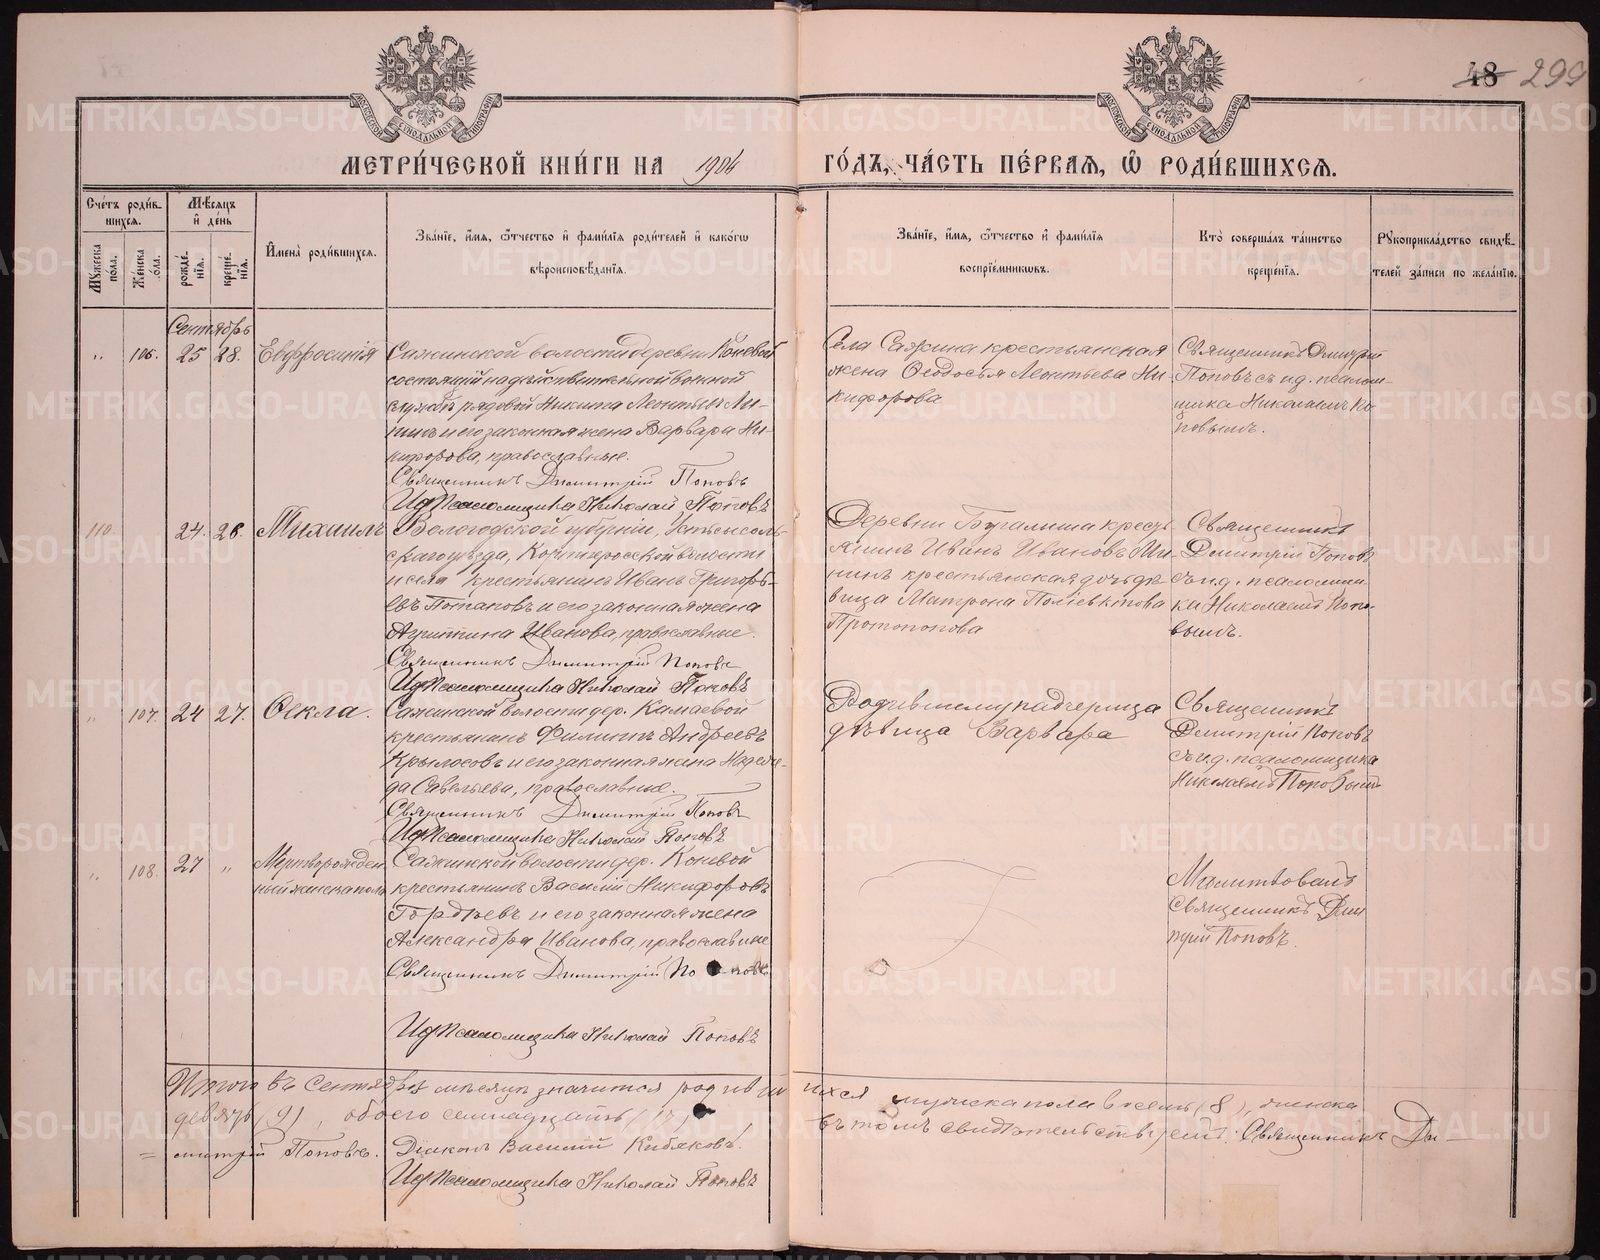 48 299
МОСКОВСКОЙ СѴНОДАЛЬНОЙ ТИПОГРАФІИ
МОСКОВСКОЙ СѴНОДАЛЬНОЙ ТИПОГРАФІИ
МЕТРИ́ЧЕСКОЙ КНИ́ГИ НА 1904 ГО́ДЪ, ЧА́СТЬ ПЕ́РВАЯ, Ѡ РОДИ́ВШИХСЯ.
Сче́тъ роди́в-
шихся.
Мꙋжеска по́ла.
Же́нска по́ла.
Мѣ́сяцъ
и҆ де́нь
рожде́нїя.
креще́нїя.
И҆мена̀ роди́вшихся.
Зва́нїе, и҆́мя, ѻ҆́тчество и҆ фами́лїя роди́телей и҆ како́гѡ
вѣроисповѣ́данїя.
Зва́нїе, и҆́мя, ѻ҆́тчество и҆ фами́лїя
воспрїе́мникѡвъ.
Кто̀ соверша́лъ та́инство
креще́нїя.
Рꙋкоприкла́дство свидѣ́-
телей за́писи по жела́нїю.
Сентябрь
" 106. 25 28. Евфросинія
Сажинской волости деревни Коневой
состоящій на дѣйствительной военной
службѣ рядовой Никита Леонтьевъ Ли-
пинъ и его законная жена Варвара Ни-
кифорова, православные.
Священникъ Димитрій Поповъ
И д Псаломщика Николай Поповъ
Села Сажина крестьянская
жена Ѳеодосья Леонтьева Ни-
кифорова
Священникъ Димитрій
Поповъ съ и.д. псалом-
щика Николаемъ По
повымъ.
110. 24. 26. Михаилъ
Вологодской губерніи, Устьсысоль-
скаго уѣзда, Корткеросской волости
и села крестьянинъ Иванъ Григорь-
евъ Потаповъ и его законная жена
Агриппина Иванова, православные.
Священникъ Димитрій Поповъ
И д Псаломщика Николай Поповъ
Деревни Бугалыша крест
янинъ Иванъ Ивановъ Ми-
нинъ крестьянская дочь дѣ
вица Матрона Поліевктова
Протопопова
Священникъ
Димитрій Поповъ
съ и.д. псаломщи-
ка Николаемъ Попо-
вымъ.
" 107. 24 27. Ѳекла.
Сажинской волости дер. Камаевой
крестьянинъ Филиппъ Андреевъ
Крылосовъ и его законная жена Надеж-
да Савельева, православные.
Священникъ Димитрій Поповъ
И д Псаломщика Николай Поповъ
Родившему падчерица
дѣвица Варвара
Священникъ
Димитрій Поповъ
съ и.д. псаломщика
Николаемъ Поповымъ
" 108. 27 " Мертворожден
ный женска пола
Сажинской волости дер. Коневой
крестьянинъ Василій Никифоровъ
Гордѣевъ и его законная жена
Александра Иванова, православные
Священникъ Димитрій Поповъ
И д Псаломщика Николай Поповъ
Молитвовалъ
Священникъ Дми
трій Поповъ.
Итого въ Сентябрѣ мѣсяцѣ значится родившихся мужска пола восемь (8), женска
девять (9), обоего семнадцать (17) въ томъ свидѣтельствуемъ: Священникъ Ди-
= митрій Поповъ. Діаконъ Василій Кибяковъ
И д Псаломщика Николай Поповъ
METRIKI.GASO-URAL.RU